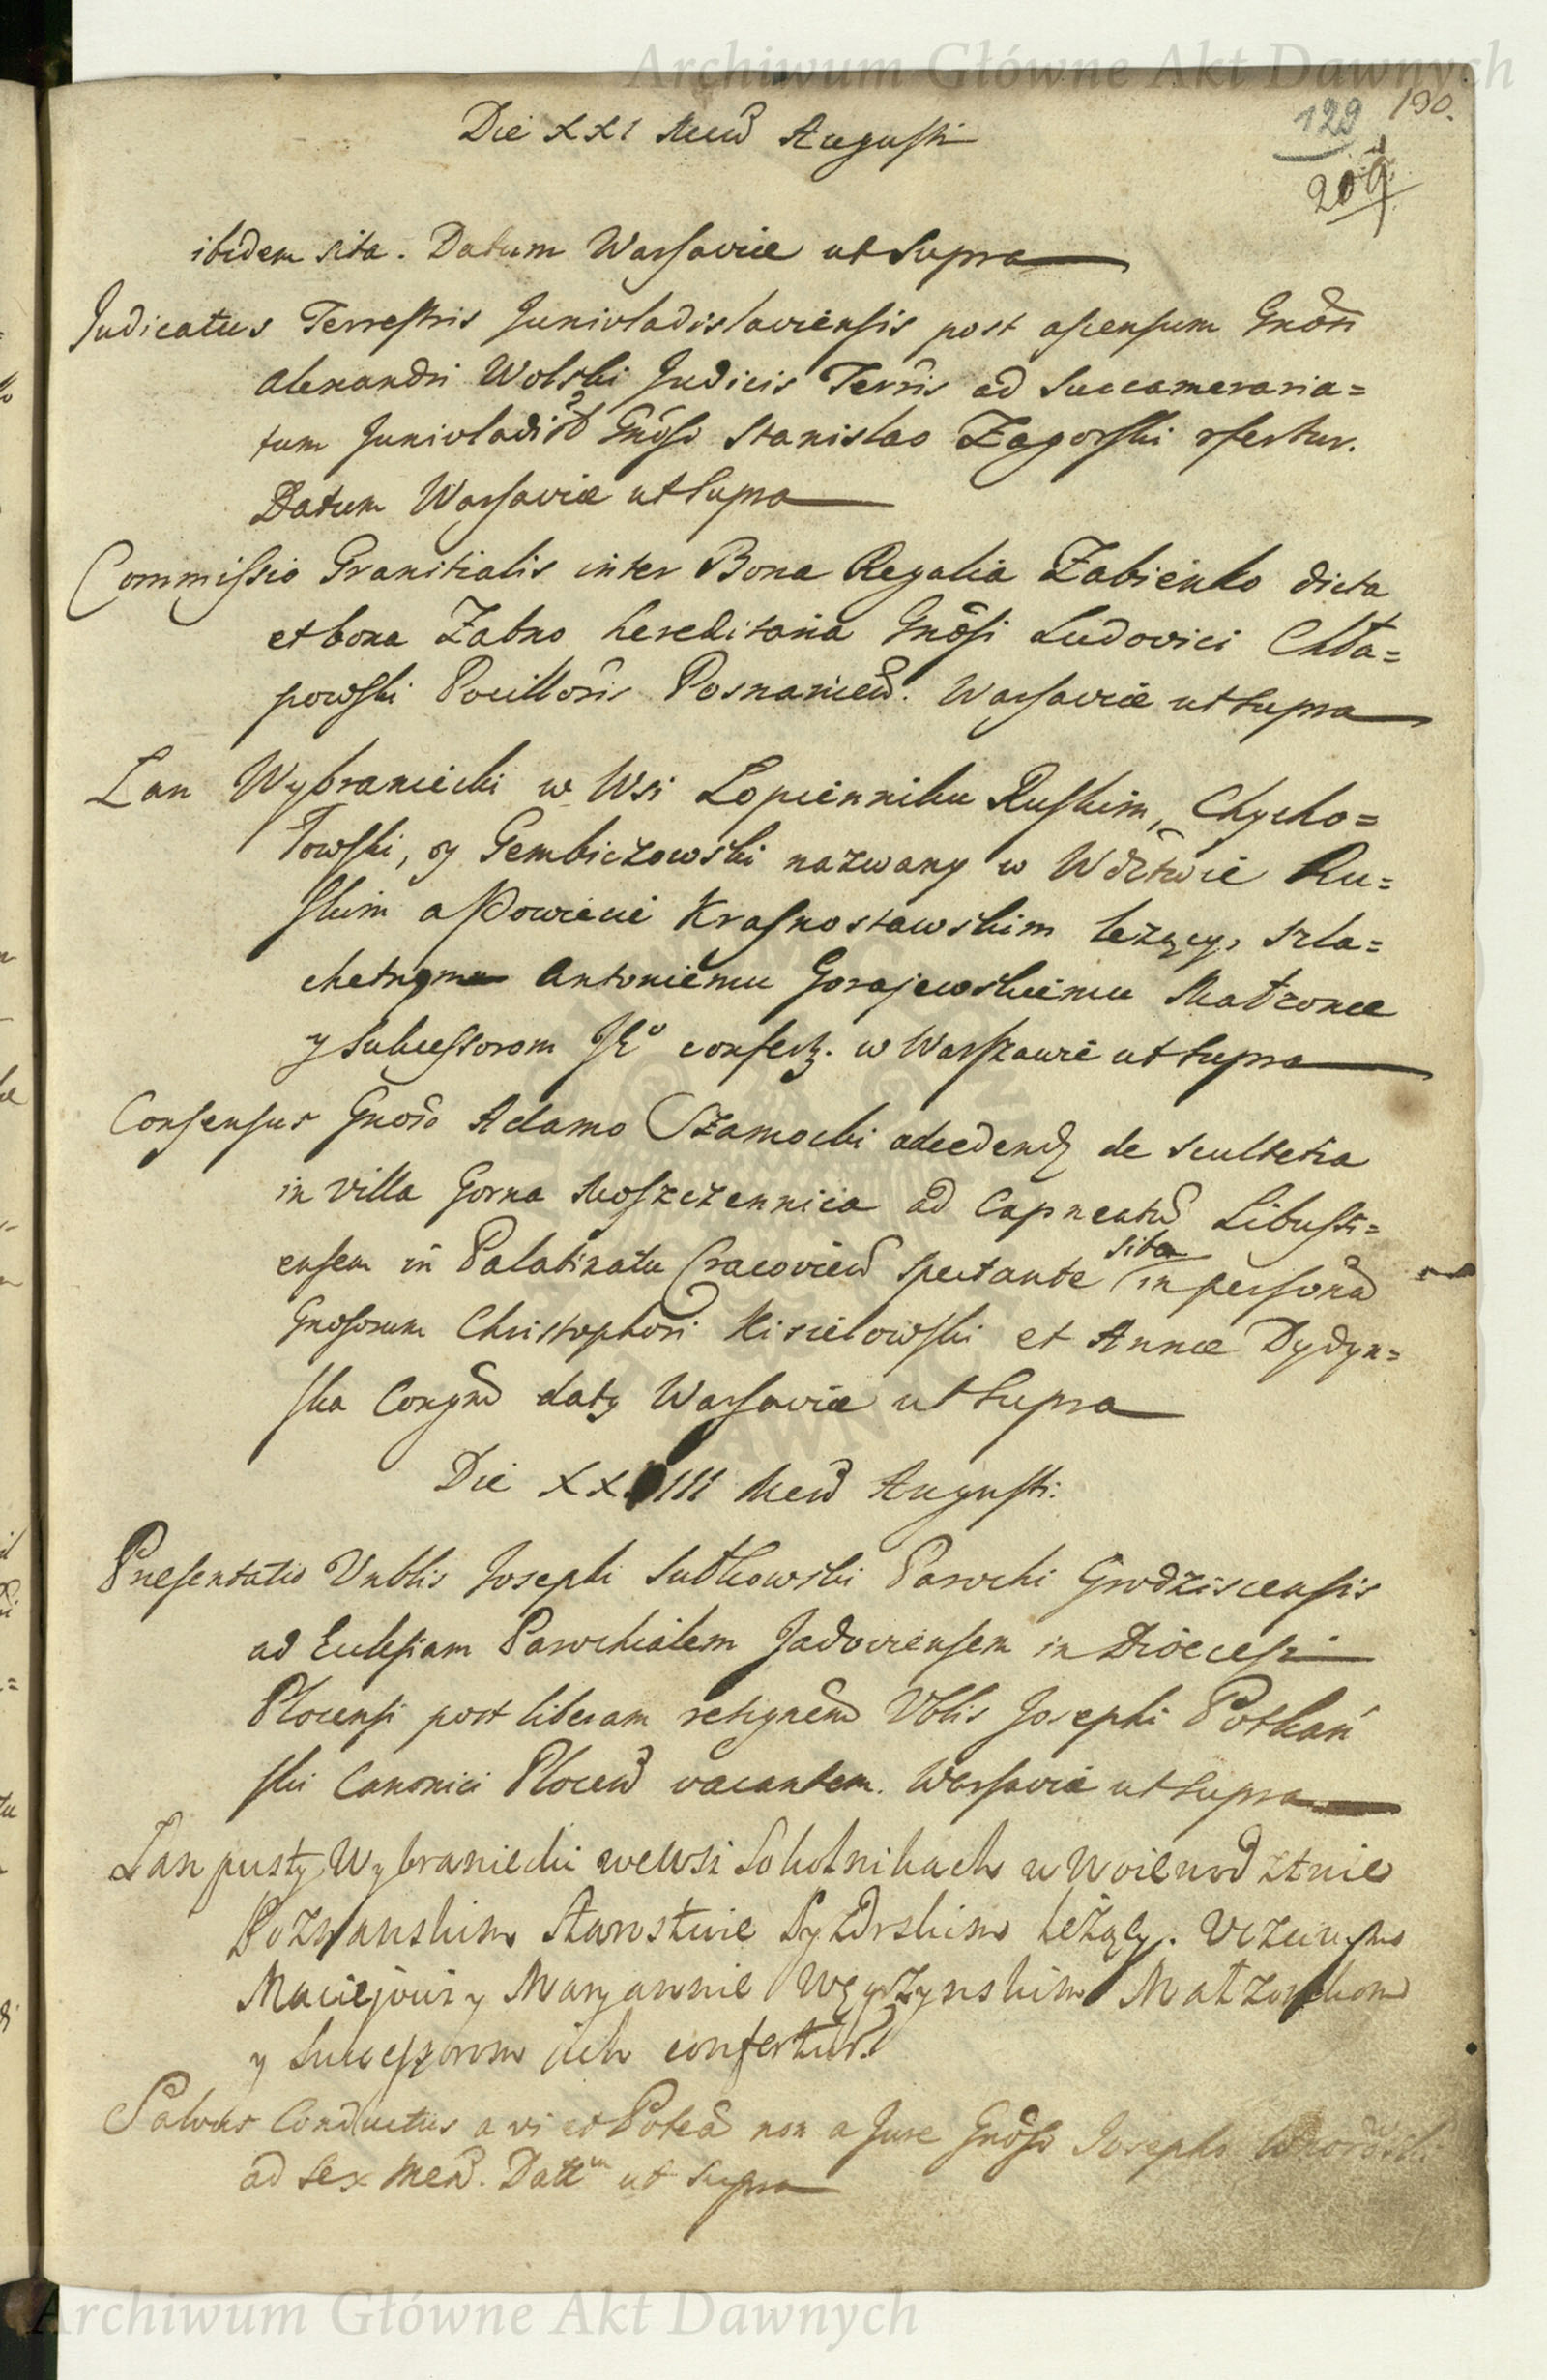 Archiwum Główne Akt Dawnych
Die XXI Mens Augusti
129 130.
209
ibidem sita. Datum Warsaviæ ut supra
Judicatus Terrestris Junivladislaviensis post ascensum Gnosi
Alexandri Wolski Judicis Terris ad Succameraria=
tum Junivladis Gnoso Stanislao Zagorski cfertur.
Datum Warsaviæ ut supra
Commissio Granitialis inter Bona Regalia Zabienko dicta
et bona Zabno hereditaria Gnosi Ludovici Chła=
powski Pocilloris Posnaniens. Warsaviæ ut supra
Łan Wybraniecki w Wsi Łopienniku Ruskim, Chycho=
łowski, y Gembiczowski nazwany w Wdztwie Ru=
skim a Powiecie Krasnostawskim leżący, szla=
chetnemu Antoniemu Gorajewskiemu Małżonce
y Sukcessorom JEo confertz. w Warszawie ut supra
Consensus Gnoso Adamo Szamocki ad cedendz de scultetia
in villa Gorna Moszczennica ad Capneatu Libusz=
ensem in Palatinatu Cracoviens spectante sita in persona
Gnosorum Christophori Kisielowski et Annæ Dydyn=
ska Conjgu datz Warsaviæ ut supra
Die XXIII Mens Augusti.
Præsentatio Vnblis Josephi Sutkowski Parochi Grodziscensis
ad Eccliesiam Parochialem Jadoviensem in Dioecesi
Plocensi post liberam resignem Vblis Josephi Potkań
ski Canonici Plocens vacantem. Warsaviæ ut supra
Łan pusty Wybraniecki we Wsi Sokolnikach w Woiewodztwie
Poznanskim Starostwie Pyzdrskim leżący. Vczciwym
Maciejowi y Maryannie Węgrzynskim Małzonkom
y Succeszorom ich confertur.
Salvus Conductus a vi et Potea non a Jure Gnoso Josepho
ad sex Mens. Dattm ut supra
Archiwum Główne Akt Dawnych